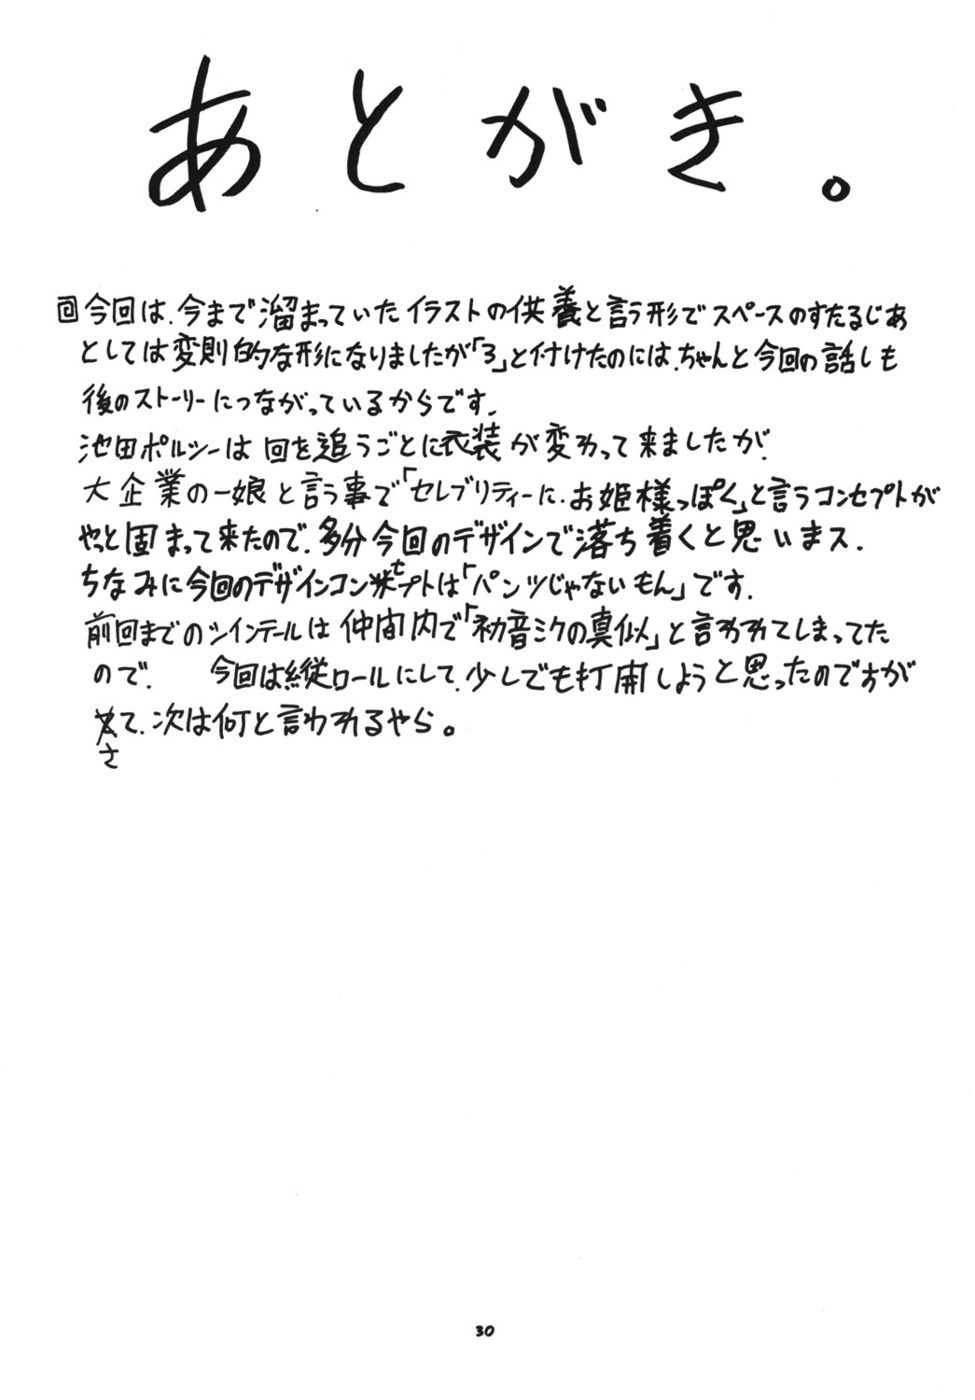 あとがき。
回今回は、今まで溜まっていたイラストの供養と言う形でスペースのすたるじあ
としては変則的な形になりましたが「3」と付けたのには、ちゃんと今回の話しも
後のストーリーにつながっているからです。
池田ポルシーは回を追うごとに衣装が変わって来ましたが、
大企業の一娘と言う事で「セレブリティーに、お姫様っぽく」と言うコンセプトが
やっと固まって来たので、多分今回のデザインで落ち着くと思いまス.
ちなみに今回のデザインコンセプトは「パンツじゃないもん」です.
前回までのツインテールは仲間内で「初音ミクの真似」と言われてしまってた
ので、 今回は縦ロールにして、少しでも打開しようと思ったのですが
さて、次は何と言われるやら。
30